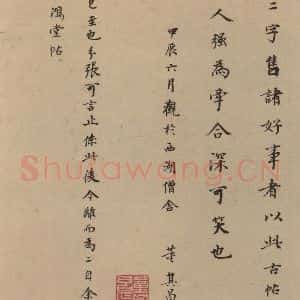 二字售諸好事者以此古帖
人强為牽合深可笑也
甲辰六月觀於西湖僧舍 董其昌
張可言止係此後今離而為二自余
鴻堂帖
Shufawang.CN